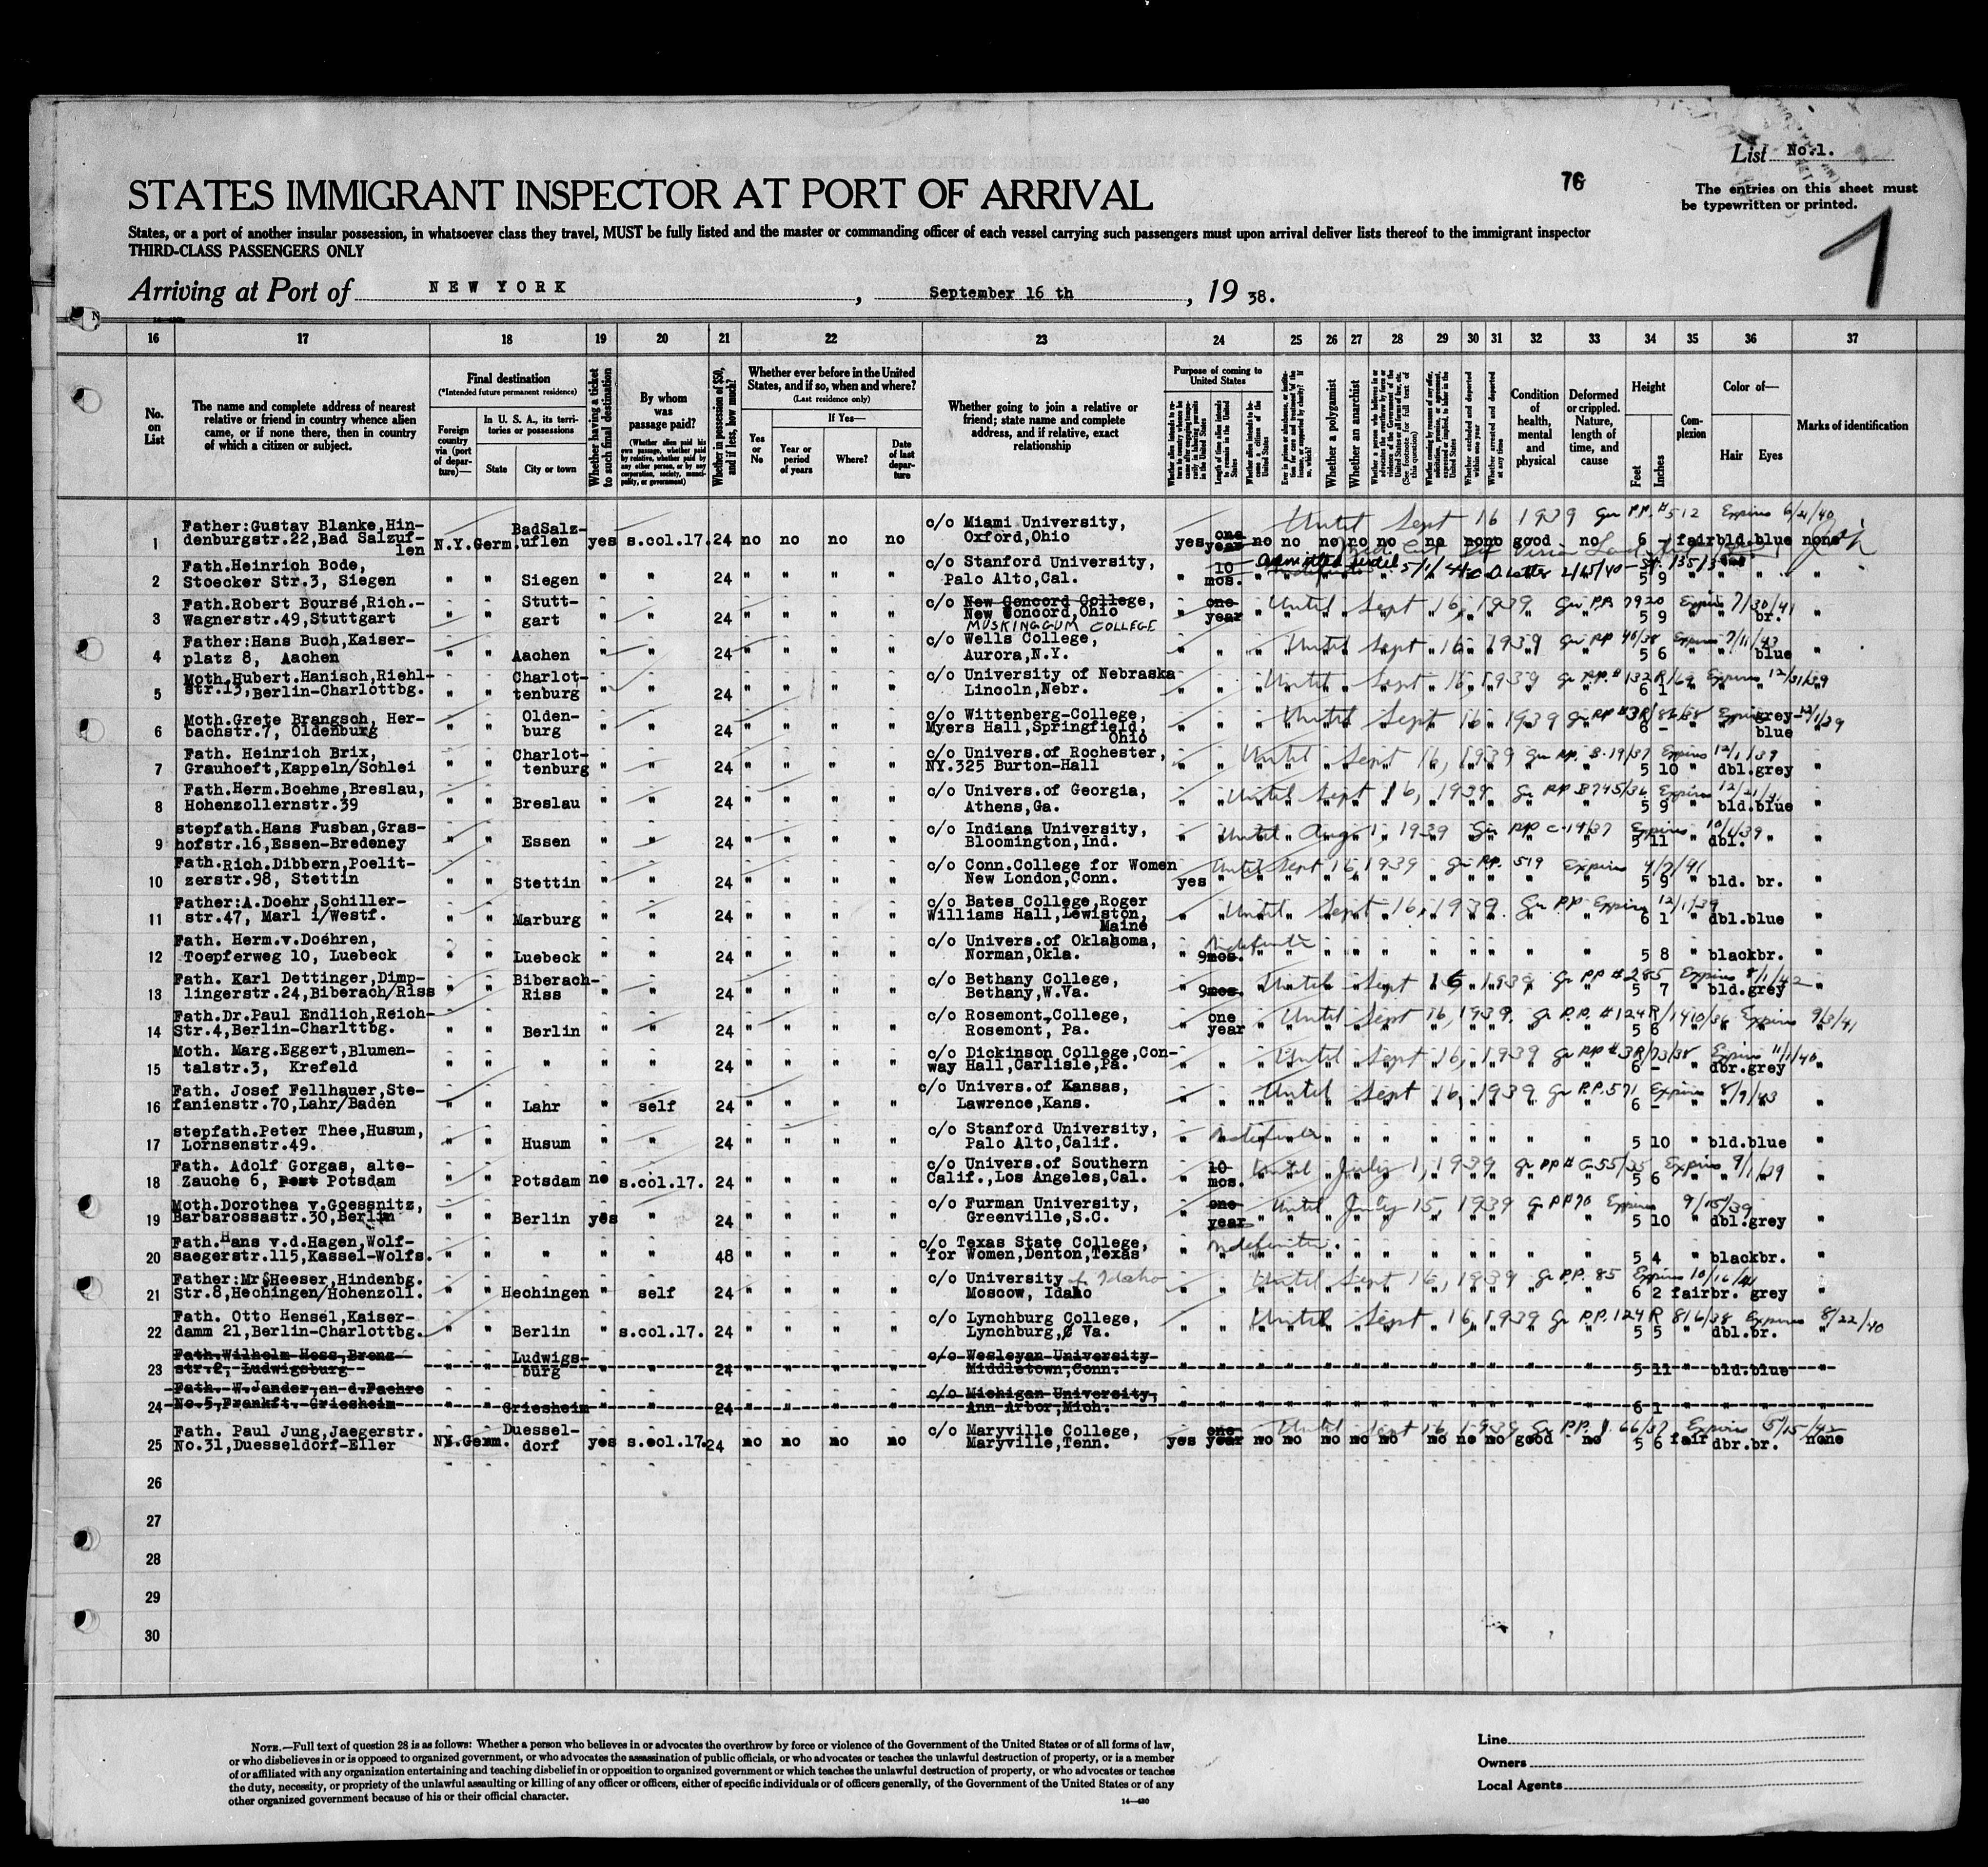 List No.1.
76
The entries on this sheet must
be typewritten or printed.
1
STATES IMMIGRANT INSPECTOR AT PORT OF ARRIVAL
States, or a port of another insular possession, in whatsoever class they travel, MUST be fully listed and the master or commanding officer of each vessel carrying such passengers must upon arrival deliver lists thereof to the immigrant inspector
THIRD-CLASS PASSENGERS ONLY
Arriving at Port of NEW YORK, September 16 th, 19 38.
16 17 18 19 20 21 22 23 24 25 26 27 28 29 30 31 32 33 34 35 36 37
No. on List
The name and complete address of nearest relative or friend in country whence alien came, or if none there, then in country of which a citizen or subject.
Final destination
(*Intended future permanent residence)
Foreign country via (port of departure)—
In U. S. A., its territories or possessions
State
City or town
Whether having a ticket to such final destination
By whom was passage paid?
(Whether alien paid his own passage, whether paid by relative, whether paid by any other person, or by any corporation, society, municipality, or government)
Whether in possession of $50, and if less, how much?
Whether ever before in the United States, and if so, when and where?
(Last residence only)
Yes or No
If Yes—
Year or period of years
Where?
Date of last departure
Whether going to join a relative or friend; state name and complete address, and if relative, exact relationship
Purpose of coming to United States
Length of time alien intends to remain in the United States
Whether a polygamist
Whether an anarchist
(See footnote for full text of this question)
Whether excluded and deported within one year
Whether arrested and deported at any time
Condition of health, mental and physical
Deformed or crippled. Nature, length of time, and cause
Height
Feet
Inches
Complexion
Color of—
Hair
Eyes
Marks of identification
Until Sept 16 1939 Gr PP. #512 Expires 6/21/40
1 Father:Gustav Blanke,Hindenburgstr.22,Bad Salzuflen N.Y. Germ. BadSalzuflen yes s.col.17. 24 no no no no c/o Miami University, Oxford,Ohio yes one year no no no no no no no no good no 6 - fair bld. blue none
2 Fath.Heinrich Bode, Stoecker Str.3, Siegen " " Siegen " " 24 " " " " c/o Stanford University, Palo Alto,Cal. " 10 mos. 5 9 " " " "
3 Fath.Robert Boursé,Rich.-Wagnerstr.49,Stuttgart " " Stuttgart " " 24 " " " " c/o New Concord College, New Concord,Ohio MUSKINGGUM COLLEGE " one year Until Sept 16, 1939 Gr PP. 7920 Expires 7/30/41 5 9 " " br. "
4 Father:Hans Buch,Kaiserplatz 8, Aachen " " Aachen " " 24 " " " " c/o Wells College, Aurora,N.Y. " " Until Sept 16, 1939 Gr PP 40/38 Expires 7/11/43 5 6 " " blue "
5 Moth.Hubert.Hanisch,Riehlstr.13,Berlin-Charlottbg. " " Charlottenburg " " 24 " " " " c/o University of Nebraska Lincoln,Nebr. " " Until Sept 16, 1939 Gr PP.# 132R/69 Expires 12/31/39 6 1 " " " "
6 Moth.Grete Brangsch, Herbachstr.7, Oldenburg " " Oldenburg " " 24 " " " " c/o Wittenberg-College, Myers Hall,Springfield, Ohio " " Until Sept 16 1939 Gr PP #3R/86/38 Expires 12/1/39 6 - " " grey-blue "
7 Fath. Heinrich Brix, Grauhoeft,Kappeln/Schlei " " Charlottenburg " " 24 " " " " c/o Univers.of Rochester, NY.325 Burton-Hall " " Until Sept 16, 1939 Gr PP. B-19/37 Expires 12/1/39 5 10 " dbl. grey "
8 Fath.Herm.Boehme,Breslau, Hohenzollernstr.39 " " Breslau " " 24 " " " " c/o Univers.of Georgia, Athens,Ga. " " Until Sept 16, 1939 Gr PP B745/36 Expires 12/21/41 5 9 " bld. blue "
9 stepfath.Hans Fusban,Grashofstr.16,Essen-Bredeney " " Essen " " 24 " " " " c/o Indiana University, Bloomington,Ind. " " Until Aug 1 1939 Gr PP C-14/37 Expires 10/1/39 5 11 " dbl. " "
10 Fath.Rich.Dibbern,Poelitzerstr.98, Stettin " " Stettin " " 24 " " " " c/o Conn.College for Women New London,Conn. yes " Until Sept 16, 1939 Gr PP. 519 Expires 4/7/41 5 9 " bld. br. "
11 Father:A.Doehr,Schillerstr.47, Marl i/Westf. " " Marburg " " 24 " " " " c/o Bates College,Roger Williams Hall,Lewiston, Maine " " Until Sept 16, 1939. Gr PP Expires 12/1/39 6 1 " dbl. blue "
12 Fath. Herm.v.Doehren, Toepferweg 10, Luebeck " " Luebeck " " 24 " " " " c/o Univers.of Oklahoma, Norman,Okla. " 9mos. Indefinite 5 8 " black br. "
13 Fath. Karl Dettinger,Dimplingerstr.24,Biberach/Riss " " Biberach-Riss " " 24 " " " " c/o Bethany College, Bethany,W.Va. " 9mos. Until Sept 16 1939 Gr PP # 285 Expires 8/1/42 5 7 " bld. grey "
14 Fath.Dr.Paul Endlich,Reich-Str.4,Berlin-Charlttbg. " " Berlin " " 24 " " " " c/o Rosemont College, Rosemont, Pa. " one year Until Sept 16, 1939. Gr P.P. #124R/1410/36 Expires 9/3/41 5 6 " " " "
15 Moth. Marg.Eggert,Blumentalstr.3, Krefeld " " " " " 24 " " " " c/o Dickinson College,Conway Hall,Carlisle,Pa. " " Until Sept 16, 1939 Gr PP #3R/73/38 Expires 11/1/40 6 - " dbr. grey "
16 Fath. Josef Fellhauer,Stefanienstr.70,Lahr/Baden " " Lahr " self 24 " " " " c/o Univers.of Kansas, Lawrence,Kans. " " Until Sept 16, 1939 Gr P.P.571 Expires 8/9/43 6 - " " " "
17 stepfath.Peter Thee,Husum, Lornsenstr.49. " " Husum " " 24 " " " " c/o Stanford University, Palo Alto,Calif. " Indefinite 5 10 " bld. blue "
18 Fath. Adolf Gorgas, alte-Zauche 6, Post Potsdam " " Potsdam no s.col.17. 24 " " " " c/o Univers.of Southern Calif.,Los Angeles,Cal. " 10 mos. Until July 1, 1939 Gr PP# C-55/35 Expires 9/1/39 5 6 " " " "
19 Moth.Dorothea v.Goessnitz, Barbarossastr.30,Berlin " " Berlin yes " 24 " " " " c/o Furman University, Greenville,S.C. " one year Until July 15, 1939 Gr PP 70 Expires 9/15/39 5 10 " dbl. grey "
20 Fath.Hans v.d.Hagen,Wolfsaegerstr.115,Kassel-Wolfs. " " " " " 48 " " " " c/o Texas State College, for Women,Denton,Texas " Indefinite. 5 4 " black br. "
21 Father:Mr.Heeser,Hindenbg. Str.8,Hechingen/Hohenzoll. " " Hechingen " self 24 " " " " c/o University of Idaho Moscow, Idaho " " Until Sept 16, 1939 Gr P.P. 85 Expires 10/16/41 6 2 fair br. grey "
22 Fath. Otto Hensel,Kaiserdamm 21,Berlin-Charlottbg. " " Berlin " s.col.17. 24 " " " " c/o Lynchburg College, Lynchburg, Va. " " Until Sept 16, 1939 Gr PP.124R 816/38 Expires 8/22/40 5 5 " dbl. br. "
23 Fath.Wilhelm Hess,Brenzstr.2, Ludwigsburg Ludwigsburg 24 c/o Wesleyan University Middletown,Conn. 5 11 bld. blue "
24 Fath. W.Jander,an d.Faehre No.5,Frankft.-Griesheim Griesheim 24 c/o Michigan University, Ann Arbor,Mich. 6 1
25 Fath. Paul Jung,Jaegerstr. No.31,Duesseldorf-Eller NY. Germ. Duesseldorf yes s.col.17. 24 no no no no c/o Maryville College, Maryville,Tenn. yes one year Until Sept 16, 1939 Gr PP. J. 66/37 Expires 5/15/42 no no no no no no no no good no 5 6 fair dbr. br. none
26
27
28
29
30
NOTE.—Full text of question 28 is as follows: Whether a person who believes in or advocates the overthrow by force or violence of the Government of the United States or of all forms of law,
or who disbelieves in or is opposed to organized government, or who advocates the assassination of public officials, or who advocates or teaches the unlawful destruction of property, or is a member
of or affiliated with any organization entertaining and teaching disbelief in or opposition to organized government or which teaches the unlawful destruction of property, or who advocates or teaches
the duty, necessity, or propriety of the unlawful assaulting or killing of any officer or officers, either of specific individuals or of officers generally, of the Government of the United States or of any
other organized government because of his or their official character.
14—430
Line
Owners
Local Agents